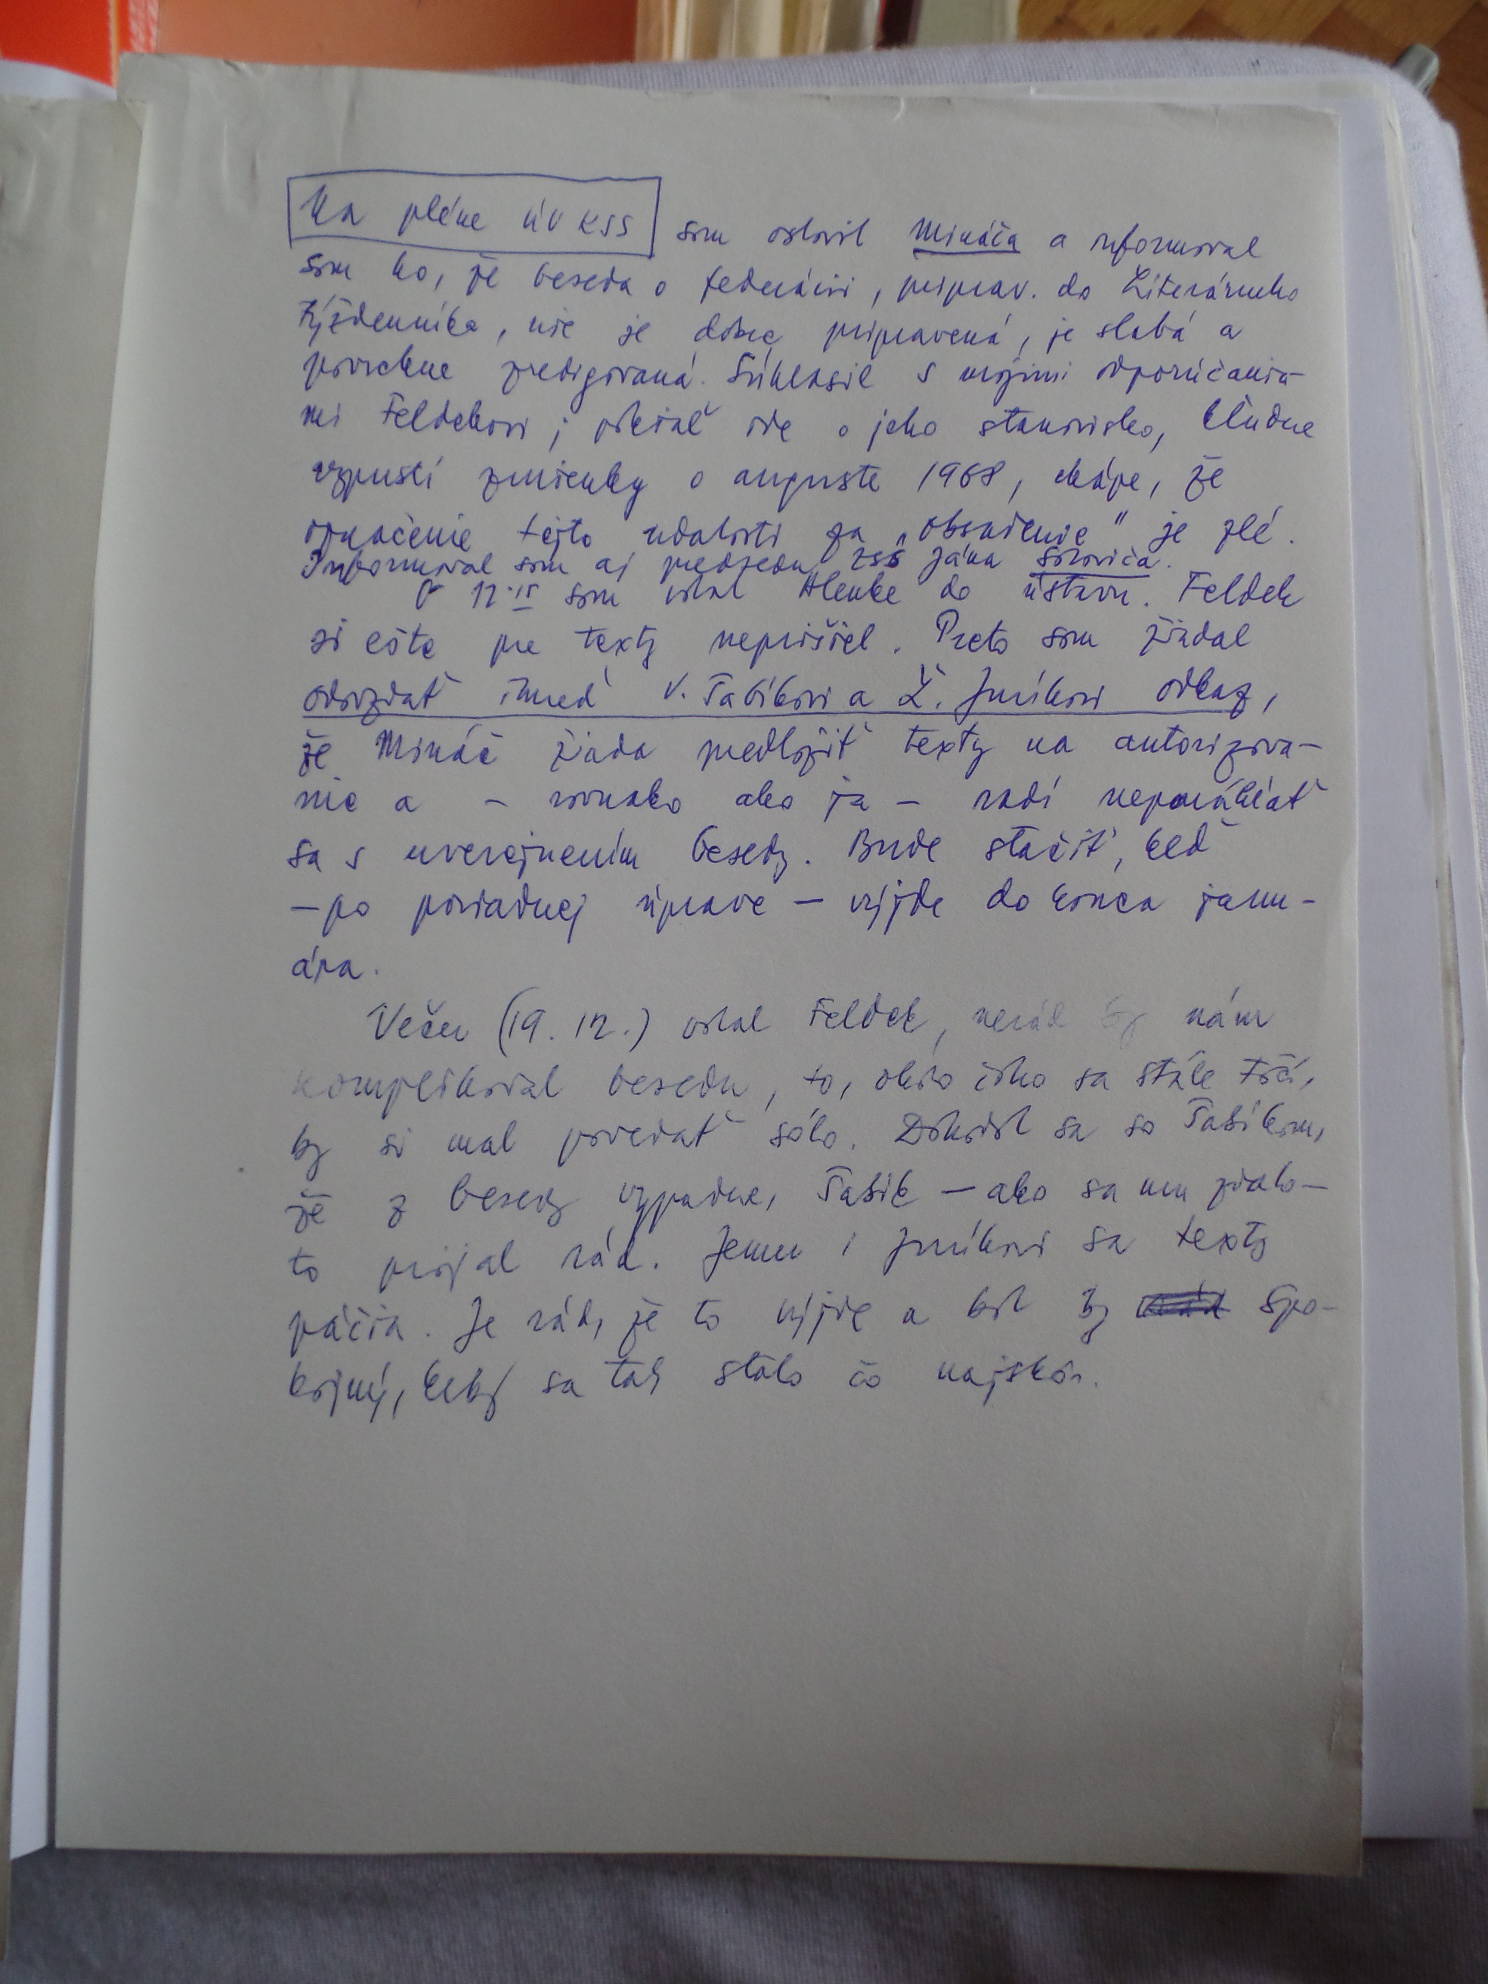 Na pléne ÚV KSS som oslovil Mináča a informoval
som ho, že beseda o federácii, priprav. do Literárneho
týždenníka, nie je dobre pripravená, je slabá a
povrchne zredigovaná. Súhlasil s mojimi odporúčania-
mi Feldekovi; pokiaľ ide o jeho stanovisko, kľudne
vypustí zmienky o auguste 1968, chápe, že
označenie tejto udalosti za „obsadenie" je zlé.
Informoval som aj predsedu ZSS Jána Soloviča.
O 12.15 som volal Alenke do ústavu. Feldek
si ešte pre texty neprišiel. Preto som žiadal
odovzdať ihneď V. Šabíkovi a Ľ. Juríkovi odkaz,
že Mináč žiada predložiť texty na autorizova-
nie a – rovnako ako ja – radí neponáhľať
sa s uverejnením besedy. Bude stačiť, keď
– po poriadnej úprave – vyjde do konca janu-
ára.
Večer (19. 12.) volal Feldek, nerád by nám
komplikoval besedu, to, okolo čoho sa stále točí,
by si mal povedať sólo. Dohodol sa so Šabíkom,
že z besedy vypadne, Šabík – ako sa mu zdalo –
to prijal rád. Jemu i Juríkovi sa texty
páčia. Je rád, že to vyjde a bol by spo-
kojný, keby sa tak stalo čo najskôr.